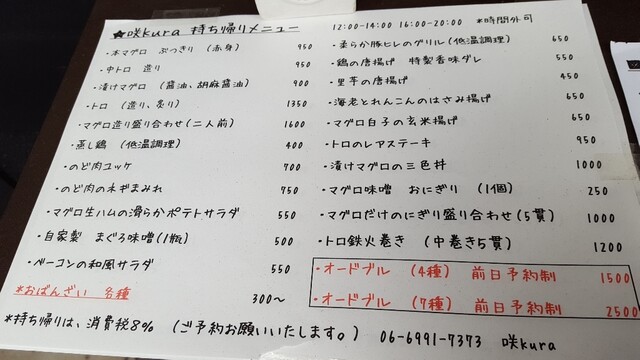 ★咲kura 持ち帰りメニュー
12:00-14:00 16:00-20:00 *時間外可
・本マグロ ぶつぎり (赤身) 950
・中トロ 造り 950
・漬けマグロ (醤油、胡麻醤油) 900
・トロ (造り、炙り) 1350
・マグロ造り盛り合わせ(二人前) 1600
・蒸し鶏 (低温調理) 400
・のど肉ユッケ 700
・のど肉のネギまみれ 750
・マグロ生ハムの滑らかポテトサラダ 550
・自家製 まぐろ味噌(1瓶) 500
・ベーコンの和風サラダ 550
*おばんざい 各種 300〜
・柔らか豚ヒレのグリル(低温調理) 650
・鶏の唐揚げ 特製香味ダレ 550
・里芋の唐揚げ 450
・海老とれんこんのはさみ揚げ 650
・マグロ白子の玄米揚げ 650
・トロのレアステーキ 950
・漬けマグロの三色丼 1000
・マグロ味噌 おにぎり (1個) 250
・マグロだけのにぎり盛り合わせ(5貫) 1000
・トロ鉄火巻き (中巻き5貫) 1200
・オードブル (4種) 前日予約制 1500
・オードブル (7種) 前日予約制 2500
*持ち帰りは、消費税8% (ご予約お願いいたします。) 06-6991-7373 咲kura